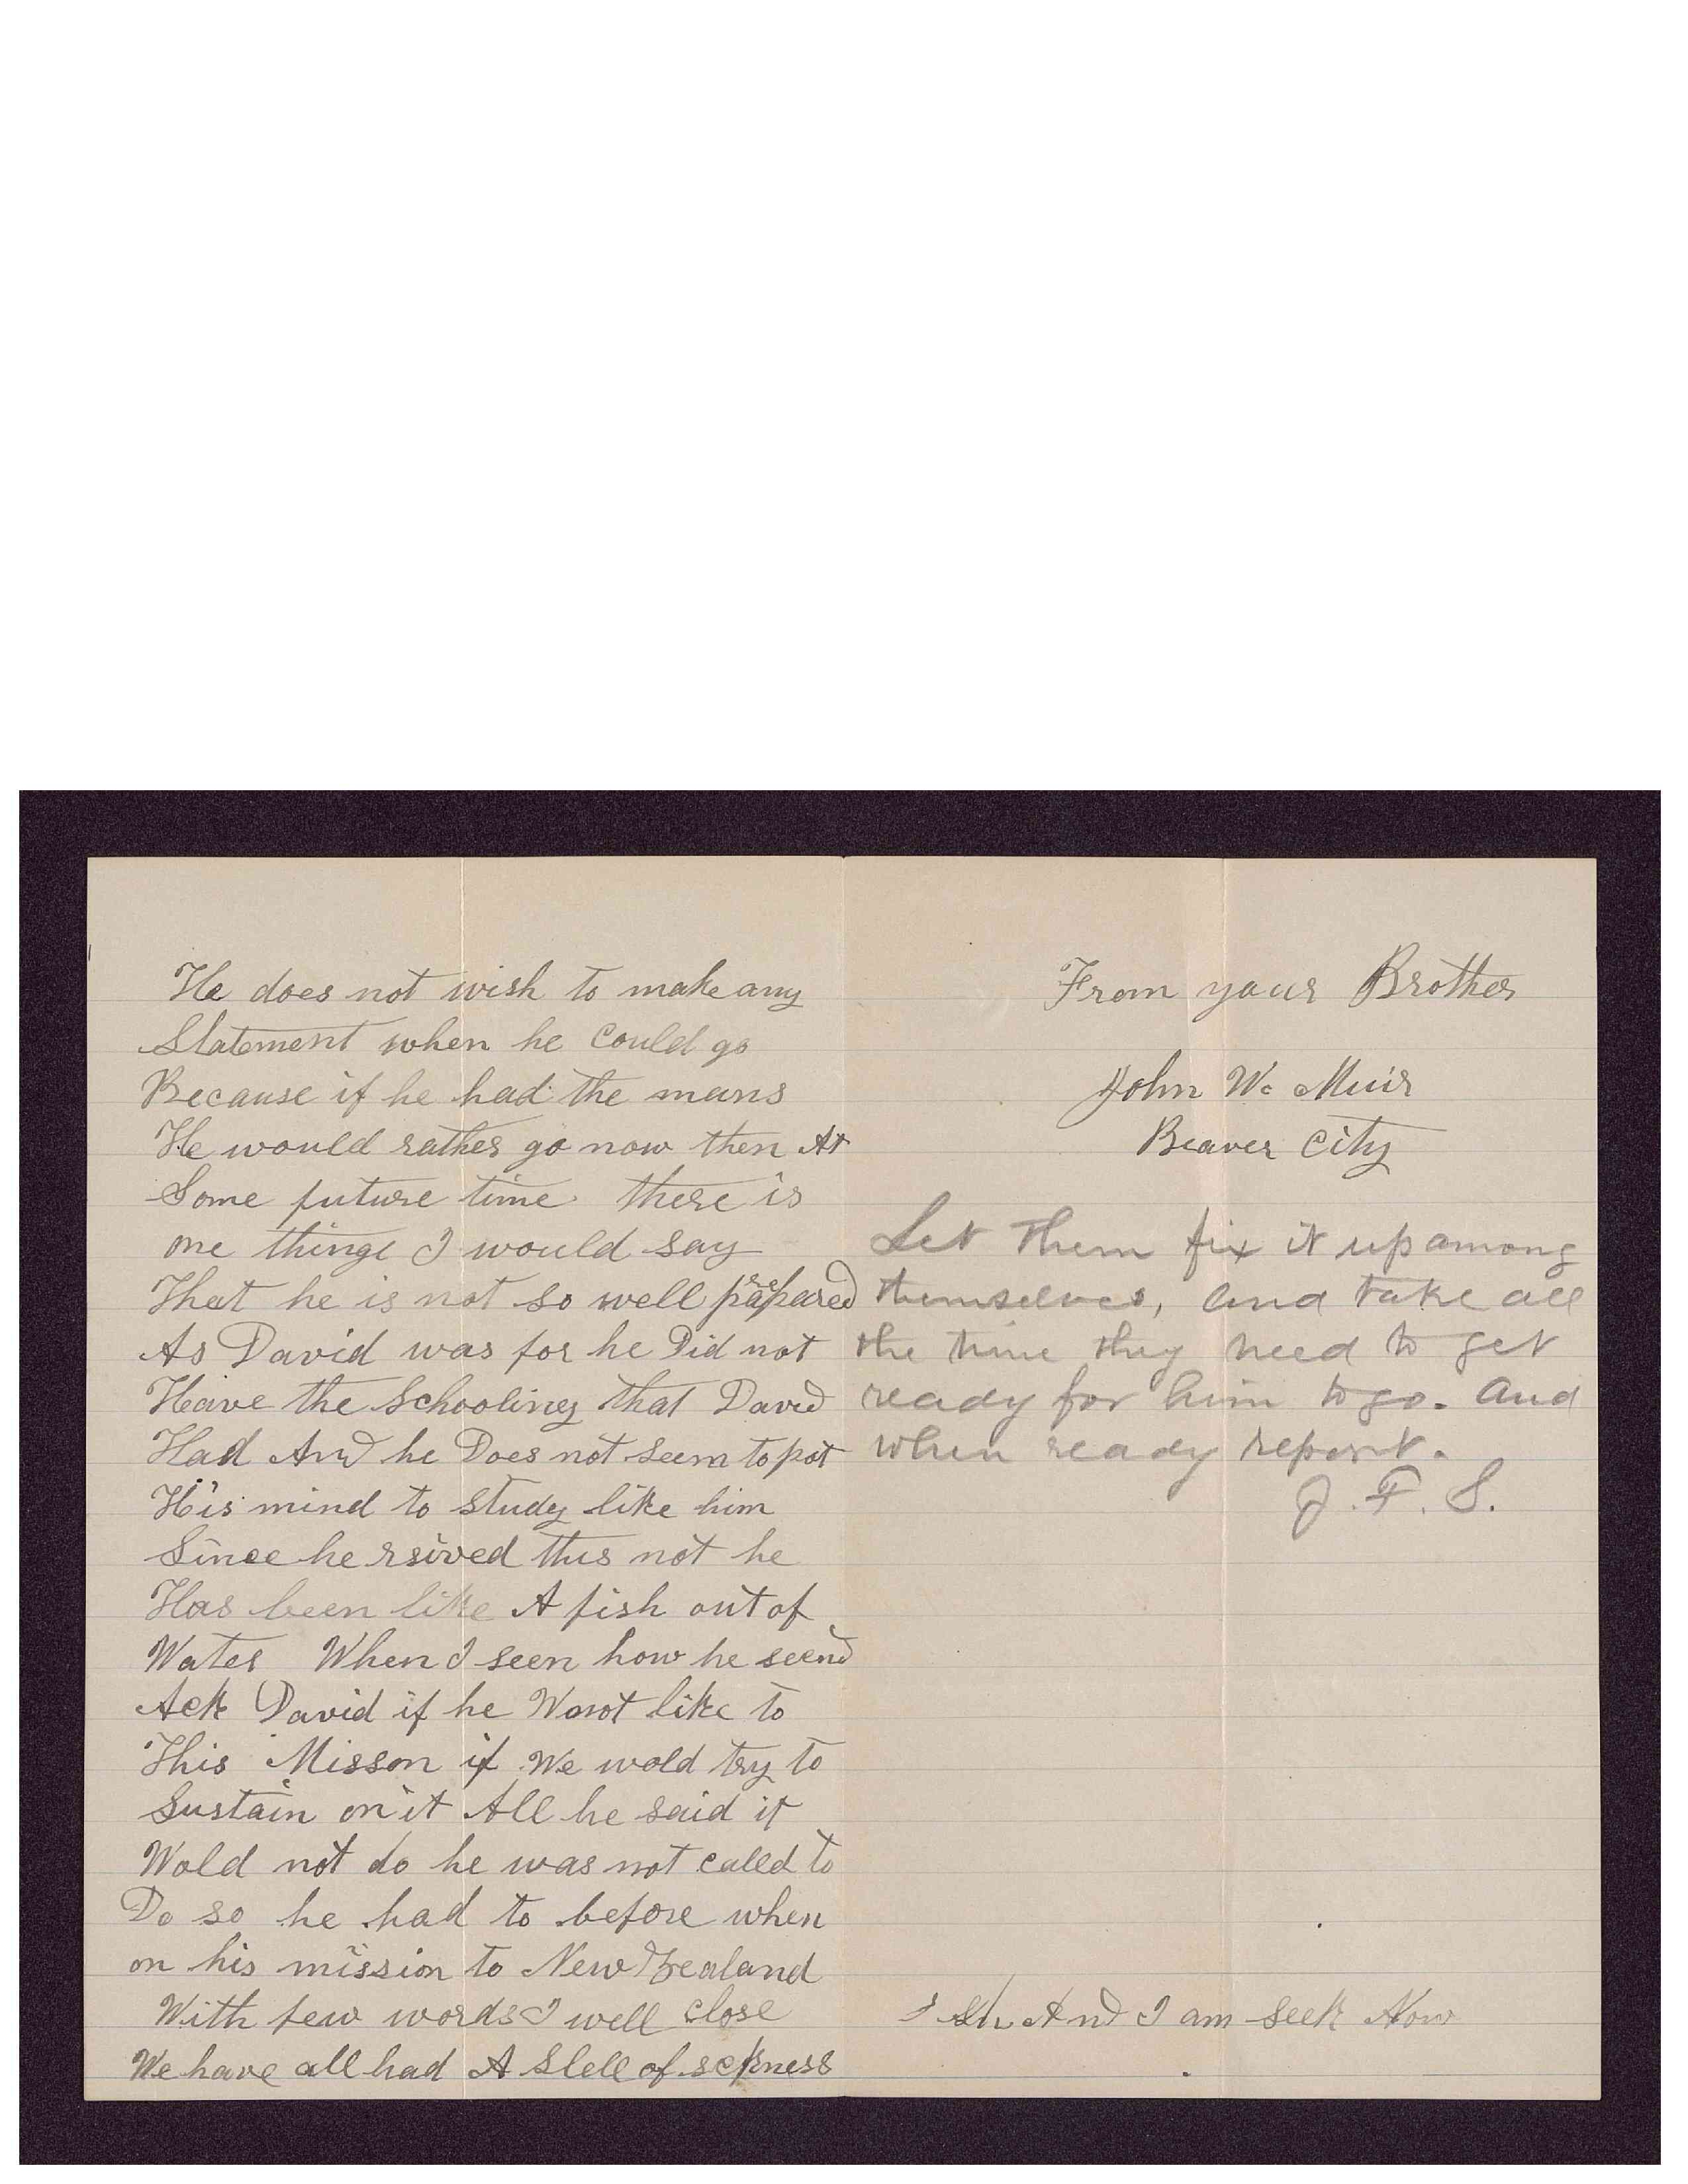 He does not wish to make any
Statement when he could go
Because if he had the mans
He would rather go now then At
Some future time there is
one thinge I would say
That he is not so well prepared
As David was for he Did not
Have the Schooling that David
Had And he Does not seem to pot
His mind to study like him
Since he rsived this not he
Has been like A fish out of
Water When I seen how he seend
Ack David if he Wont like to
This Misson if We wold try to
Sustain on it All he said it
Wold not do he was not called to
Do so he had to before when
on his mission to New Zealand
With few words I well close
We have all had A Slell of sckness
From your Brother
John W. Muir
Beaver City
Let them fix it up among
themselves, and take all
the time they need to get
ready for him to go. And
when ready report.
J. F. S.
And I am seek Now